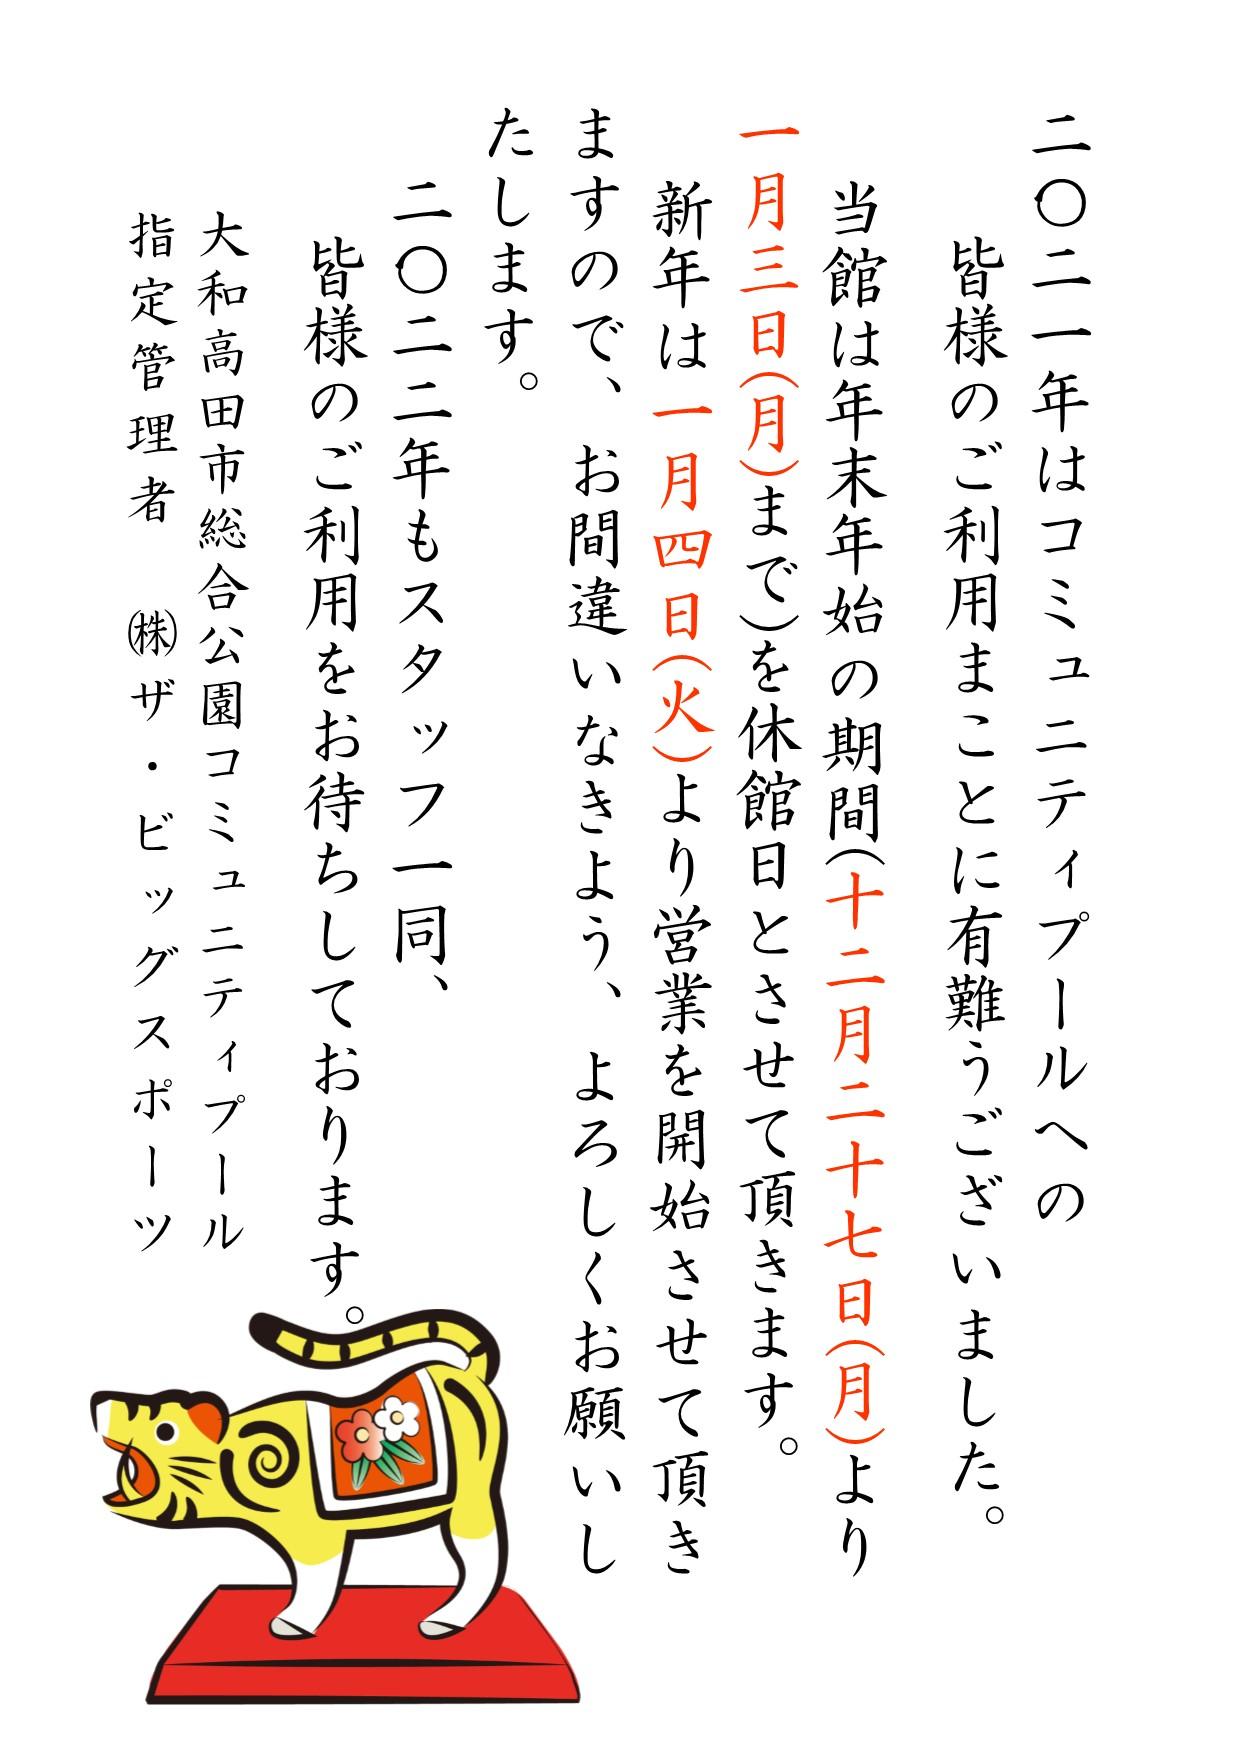 二〇二一年はコミュニティプールへの
皆様のご利用まことに有難うございました。
当館は年末年始の期間(十二月二十七日(月)より
一月三日(月)まで)を休館日とさせて頂きます。
新年は一月四日(火)より営業を開始させて頂き
ますので、お間違いなきよう、よろしくお願いし
たします。
二〇二二年もスタッフ一同、
皆様のご利用をお待ちしております。
大和高田市総合公園コミュニティプール
指定管理者　㈱ザ・ビッグスポーツ